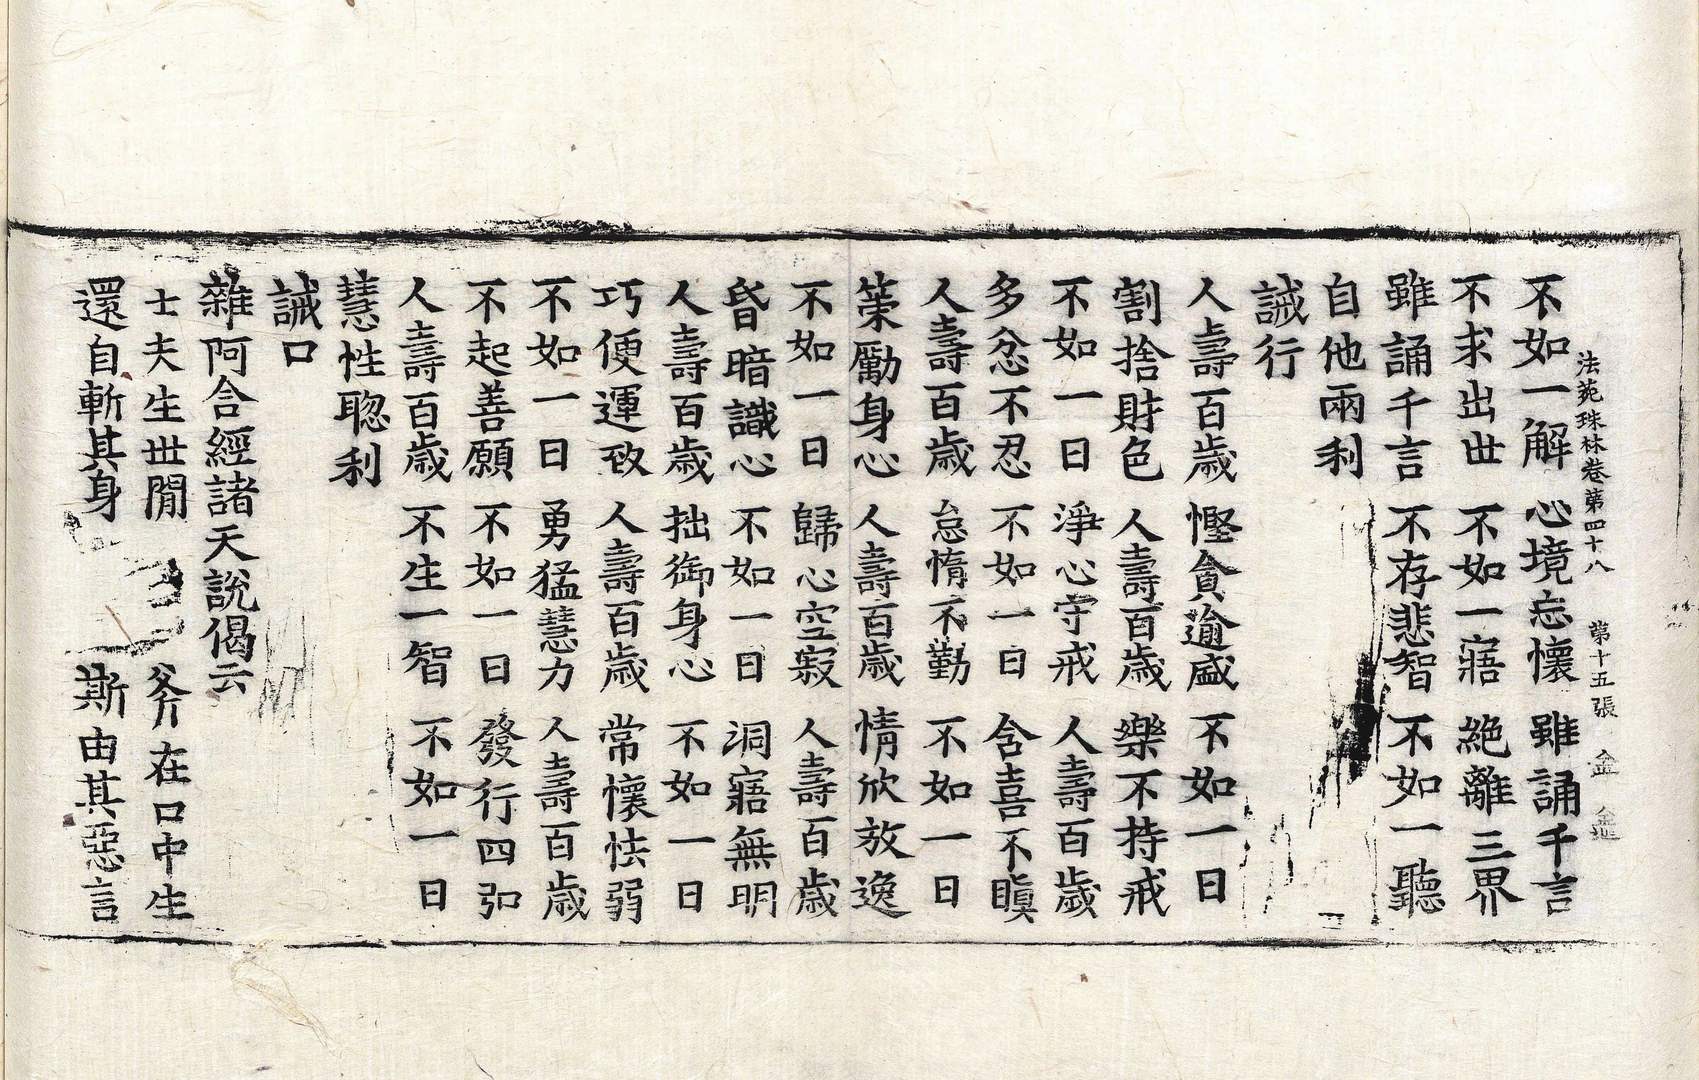 法苑珠林卷第四十八　第十五張　金
不如一解　心境忘懷　雖誦千言
不求出世　不如一寤　絶離三界
雖誦千言　不存悲智　不如一聽
自他兩利
誡行
人壽百歲　慳貪逾盛　不如一日
割捨財色　人壽百歲　樂不持戒
不如一日　淨心守戒　人壽百歲
多忿不忍　不如一日　含喜不瞋
人壽百歲　怠惰不勤　不如一日
策勵身心　人壽百歲　情欣放逸
不如一日　歸心空寂　人壽百歲
昏暗識心　不如一日　洞寤無明
人壽百歲　拙御身心　不如一日
巧便運致　人壽百歲　常懷怯弱
不如一日　勇猛慧力　人壽百歲
不起善願　不如一日　發行四弘
人壽百歲　不生一智　不如一日
慧性聰利
誡口
雜阿含經諸天說偈云
士夫生世間　斧在口中生
還自斬其身　斯由其惡言